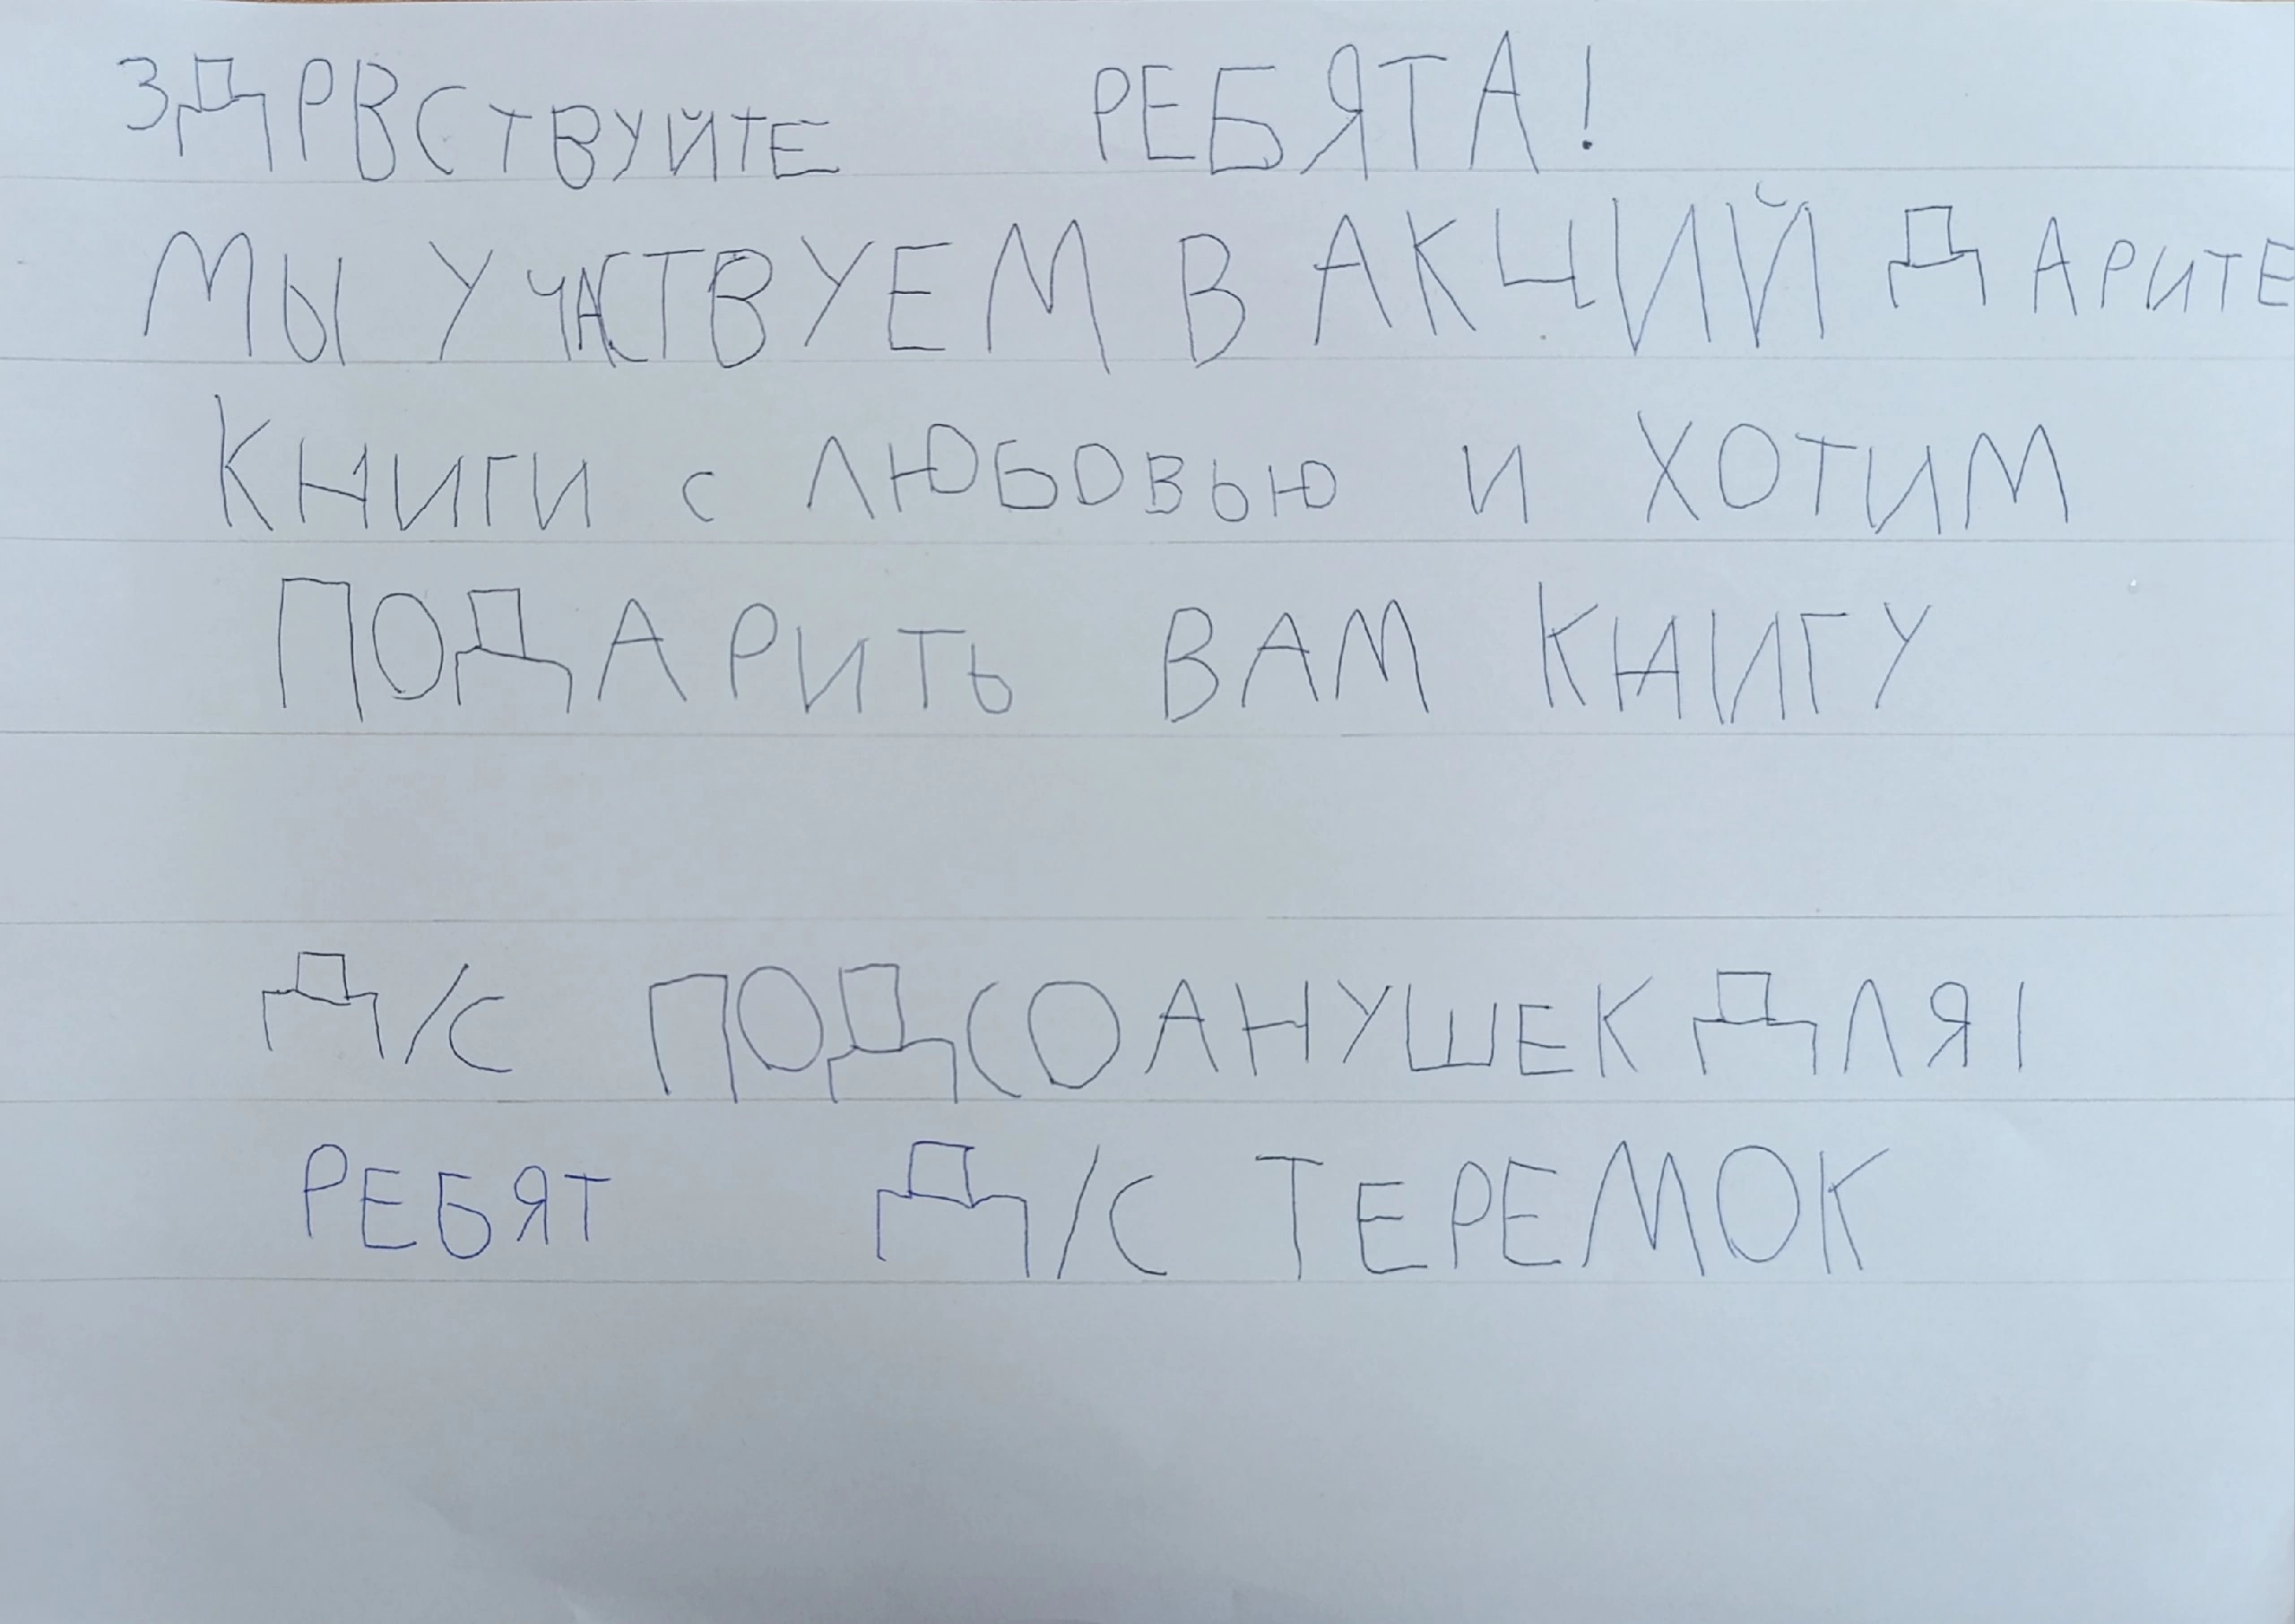 ЗДРВСТВУЙТЕ РЕБЯТА!
МЫ УЧАСТВУЕМ В АКЦИЙ ДАРИТЕ
КНИГИ С ЛЮБОВЬЮ И ХОТИМ
ПОДАРИТЬ ВАМ КНИГУ
Д/С ПОДСОАНУШЕК ДЛЯ
РЕБЯТ Д/С ТЕРЕМОК